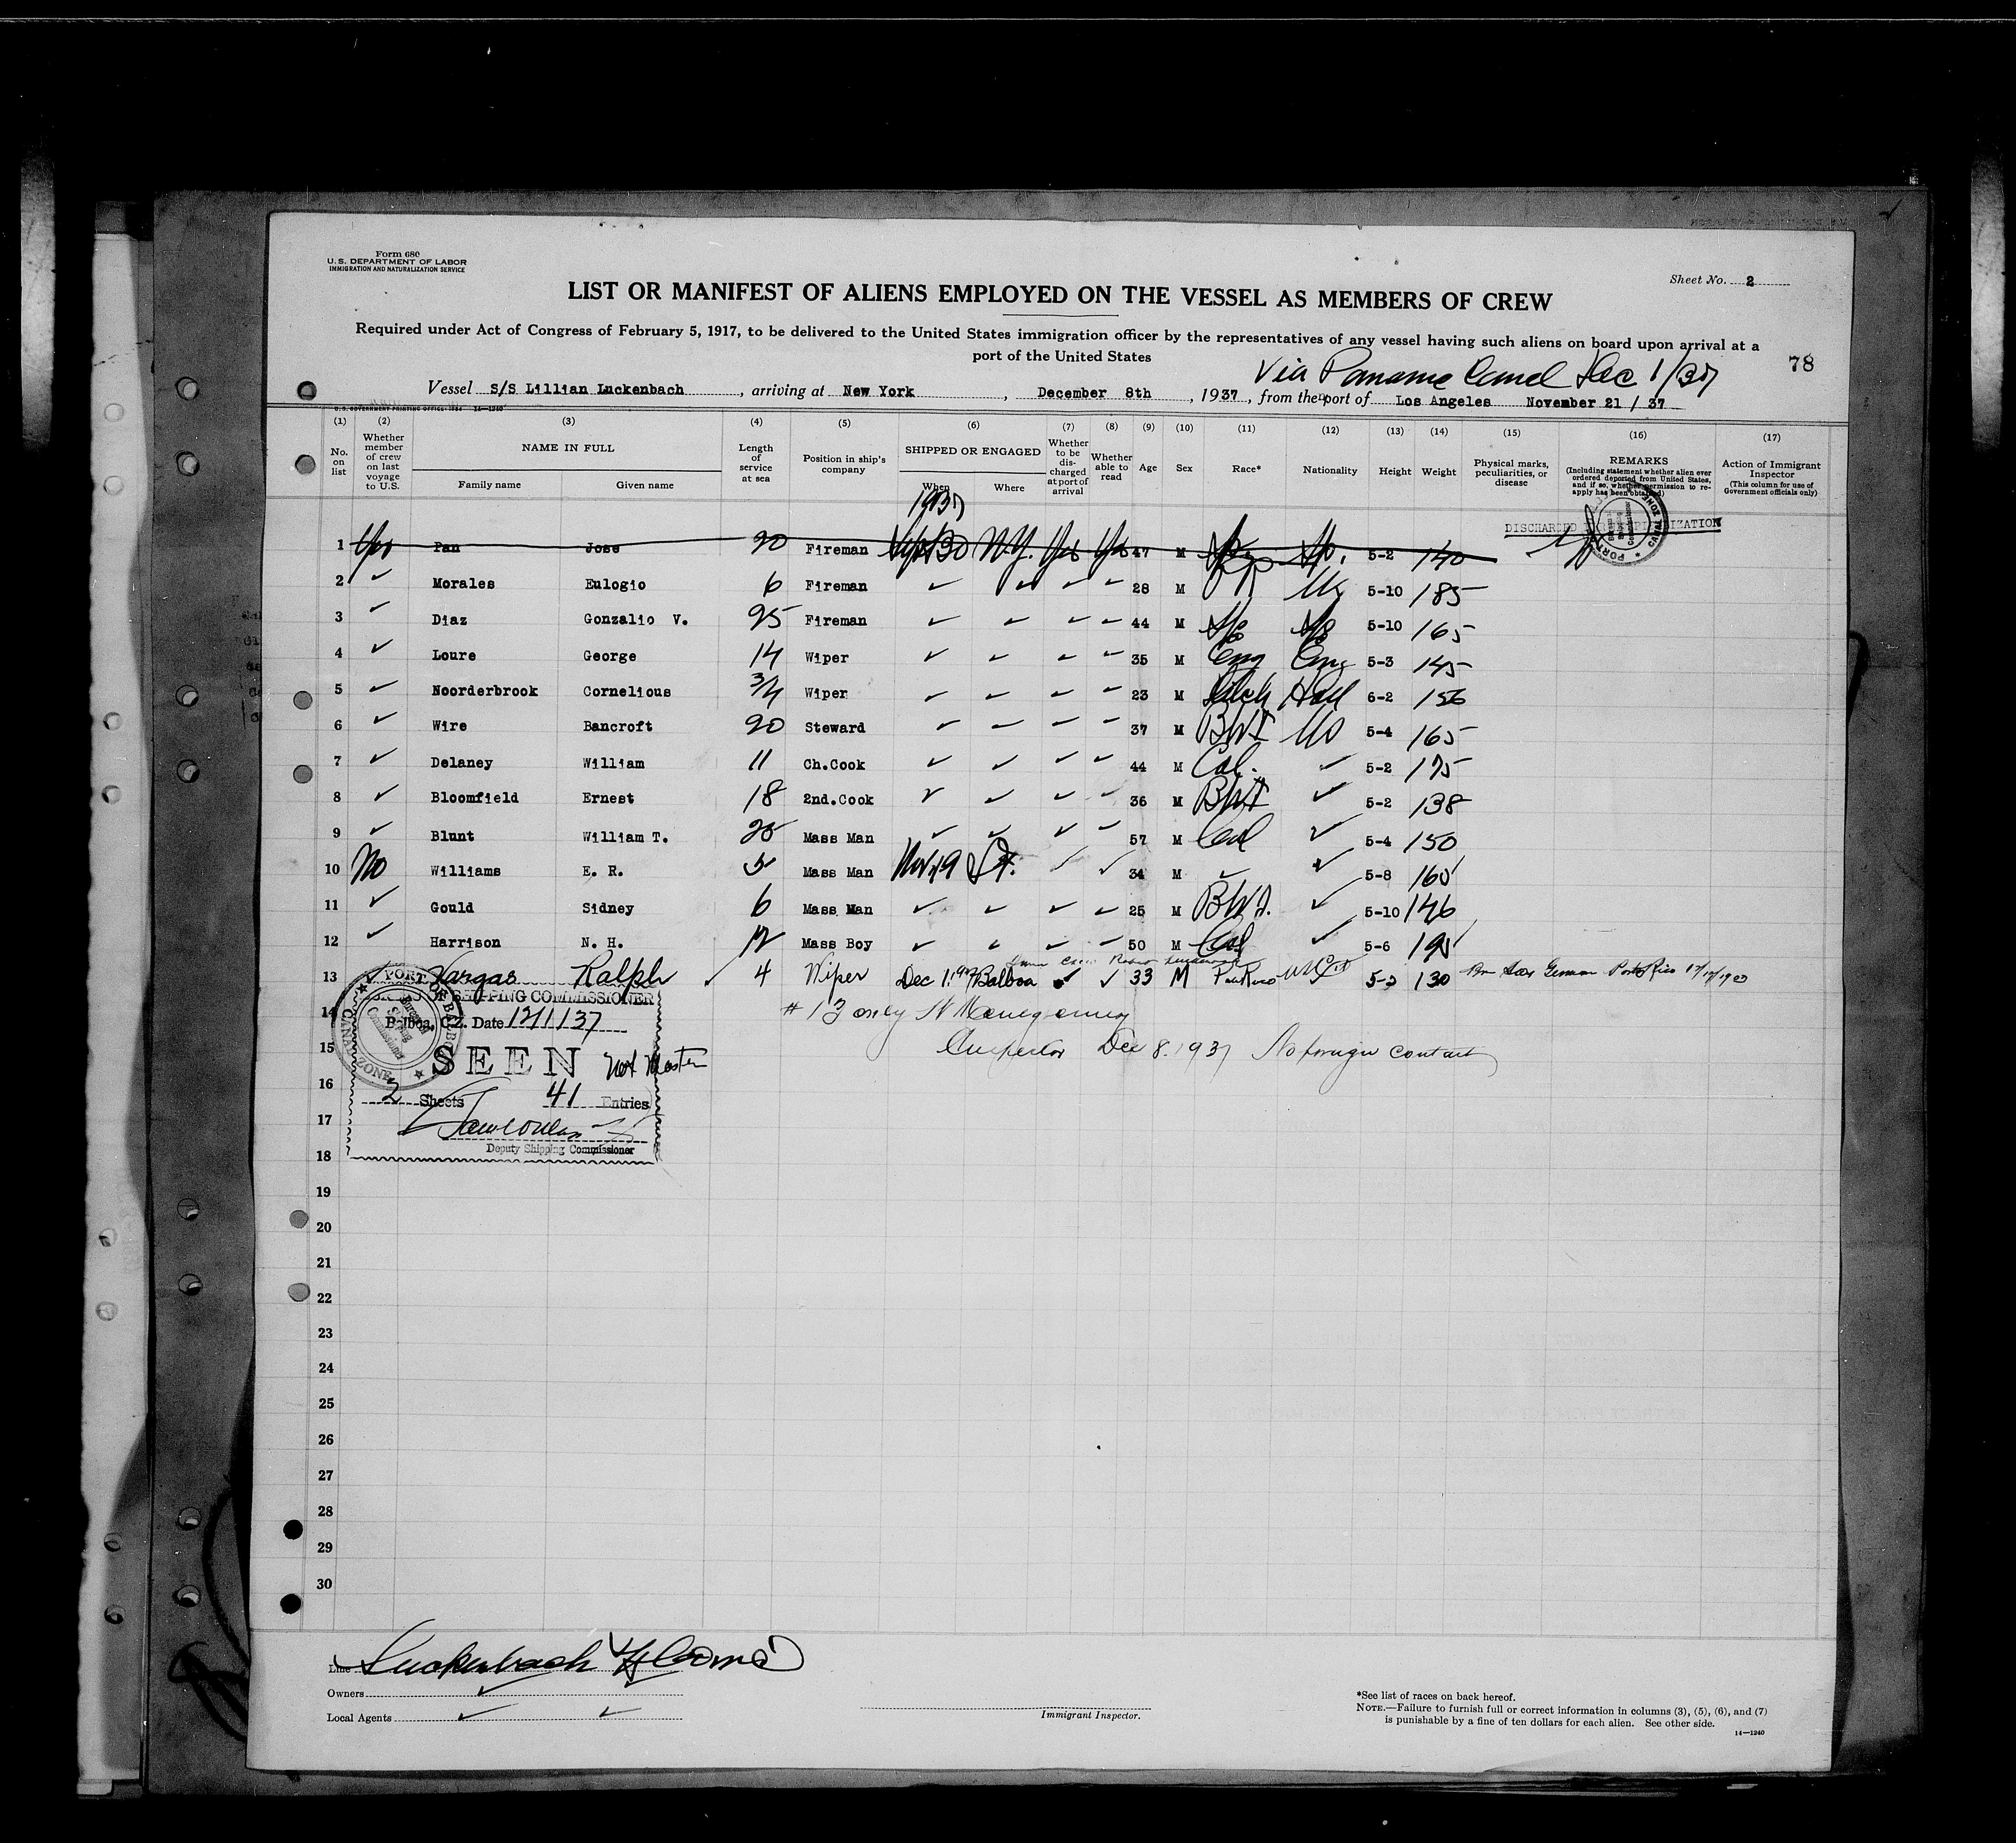 Form 680
U. S. DEPARTMENT OF LABOR
IMMIGRATION AND NATURALIZATION SERVICE
Sheet No. 2
LIST OR MANIFEST OF ALIENS EMPLOYED ON THE VESSEL AS MEMBERS OF CREW
Required under Act of Congress of February 5, 1917, to be delivered to the United States immigration officer by the representatives of any vessel having such aliens on board upon arrival at a
port of the United States
Via Panama Canal Dec 1/37
78
Vessel S/S Lillian Luckenbach, arriving at New York, December 8th, 1937, from the port of Los Angeles November 21 / 37
U. S. GOVERNMENT PRINTING OFFICE: 1934 14—1240
(1) (2) (3) (4) (5) (6) (7) (8) (9) (10) (11) (12) (13) (14) (15) (16) (17)
No. on list
Whether member of crew on last voyage to U.S.
NAME IN FULL
Family name Given name
Length of service at sea
Position in ship's company
SHIPPED OR ENGAGED
When Where
Whether to be discharged at port of arrival
Whether able to read
Age
Sex
Race*
Nationality
Height
Weight
Physical marks, peculiarities, or disease
REMARKS
(Including statement whether alien ever ordered deported from United States, and if so, whether permission to reapply has been obtained)
Action of Immigrant Inspector
(This column for use of Government officials only)
1937
DISCHARGED
1 Yes Pan Jose 20 Fireman Sept 30 N.Y. Yes Yes 47 M Sp Sp. 5-2 140
2 ✓ Morales Eulogio 6 Fireman ✓ ✓ ✓ ✓ 28 M 5-10 185
3 ✓ Diaz Gonzalio V. 25 Fireman ✓ ✓ ✓ ✓ 44 M Sp Sp 5-10 165
4 ✓ Loure George 14 Wiper ✓ ✓ ✓ ✓ 35 M Eng Eng 5-3 145
5 ✓ Noorderbrook Cornelious 3/4 Wiper ✓ ✓ ✓ ✓ 23 M Dutch Holl 6-2 156
6 ✓ Wire Bancroft 20 Steward ✓ ✓ ✓ ✓ 37 M BWI US 5-4 165
7 ✓ Delaney William 11 Ch.Cook ✓ ✓ ✓ ✓ 44 M Col. ✓ 5-2 175
8 ✓ Bloomfield Ernest 18 2nd.Cook ✓ ✓ ✓ ✓ 36 M BWI ✓ 5-2 138
9 ✓ Blunt William T. 25 Mass Man ✓ ✓ ✓ ✓ 57 M Col ✓ 5-4 150
10 No Williams E. R. 5 Mass Man Nov 19 ✓ ✓ 34 M ✓ ✓ 5-8 160
11 ✓ Gould Sidney 6 Mass Man ✓ ✓ ✓ ✓ 25 M BWI. ✓ 5-10 146
12 ✓ Harrison N. H. 12 Mass Boy ✓ ✓ ✓ ✓ 50 M Col ✓ 5-6 190
13 ✓ Vargas Ralph ✓ 4 Wiper Dec 1. 1937 Balboa ✓ ✓ 33 M 5-2 130 San German Porto Rico
PORT OF BALBOA
CANAL ZONE
SHIPPING COMMISSIONER
14 Balboa, C.Z. Date 12/1/37
# 13 only
15 SEEN Not Master
Inspector Dec 8. 1937 No foreign contact
16 2 Sheets 41 Entries
17
Deputy Shipping Commissioner
18
19
20
21
22
23
24
25
26
27
28
29
30
Line Luckenbach
Owners ✓
Local Agents ✓ ✓
Immigrant Inspector.
*See list of races on back hereof.
NOTE.—Failure to furnish full or correct information in columns (3), (5), (6), and (7)
is punishable by a fine of ten dollars for each alien. See other side.
14—1240